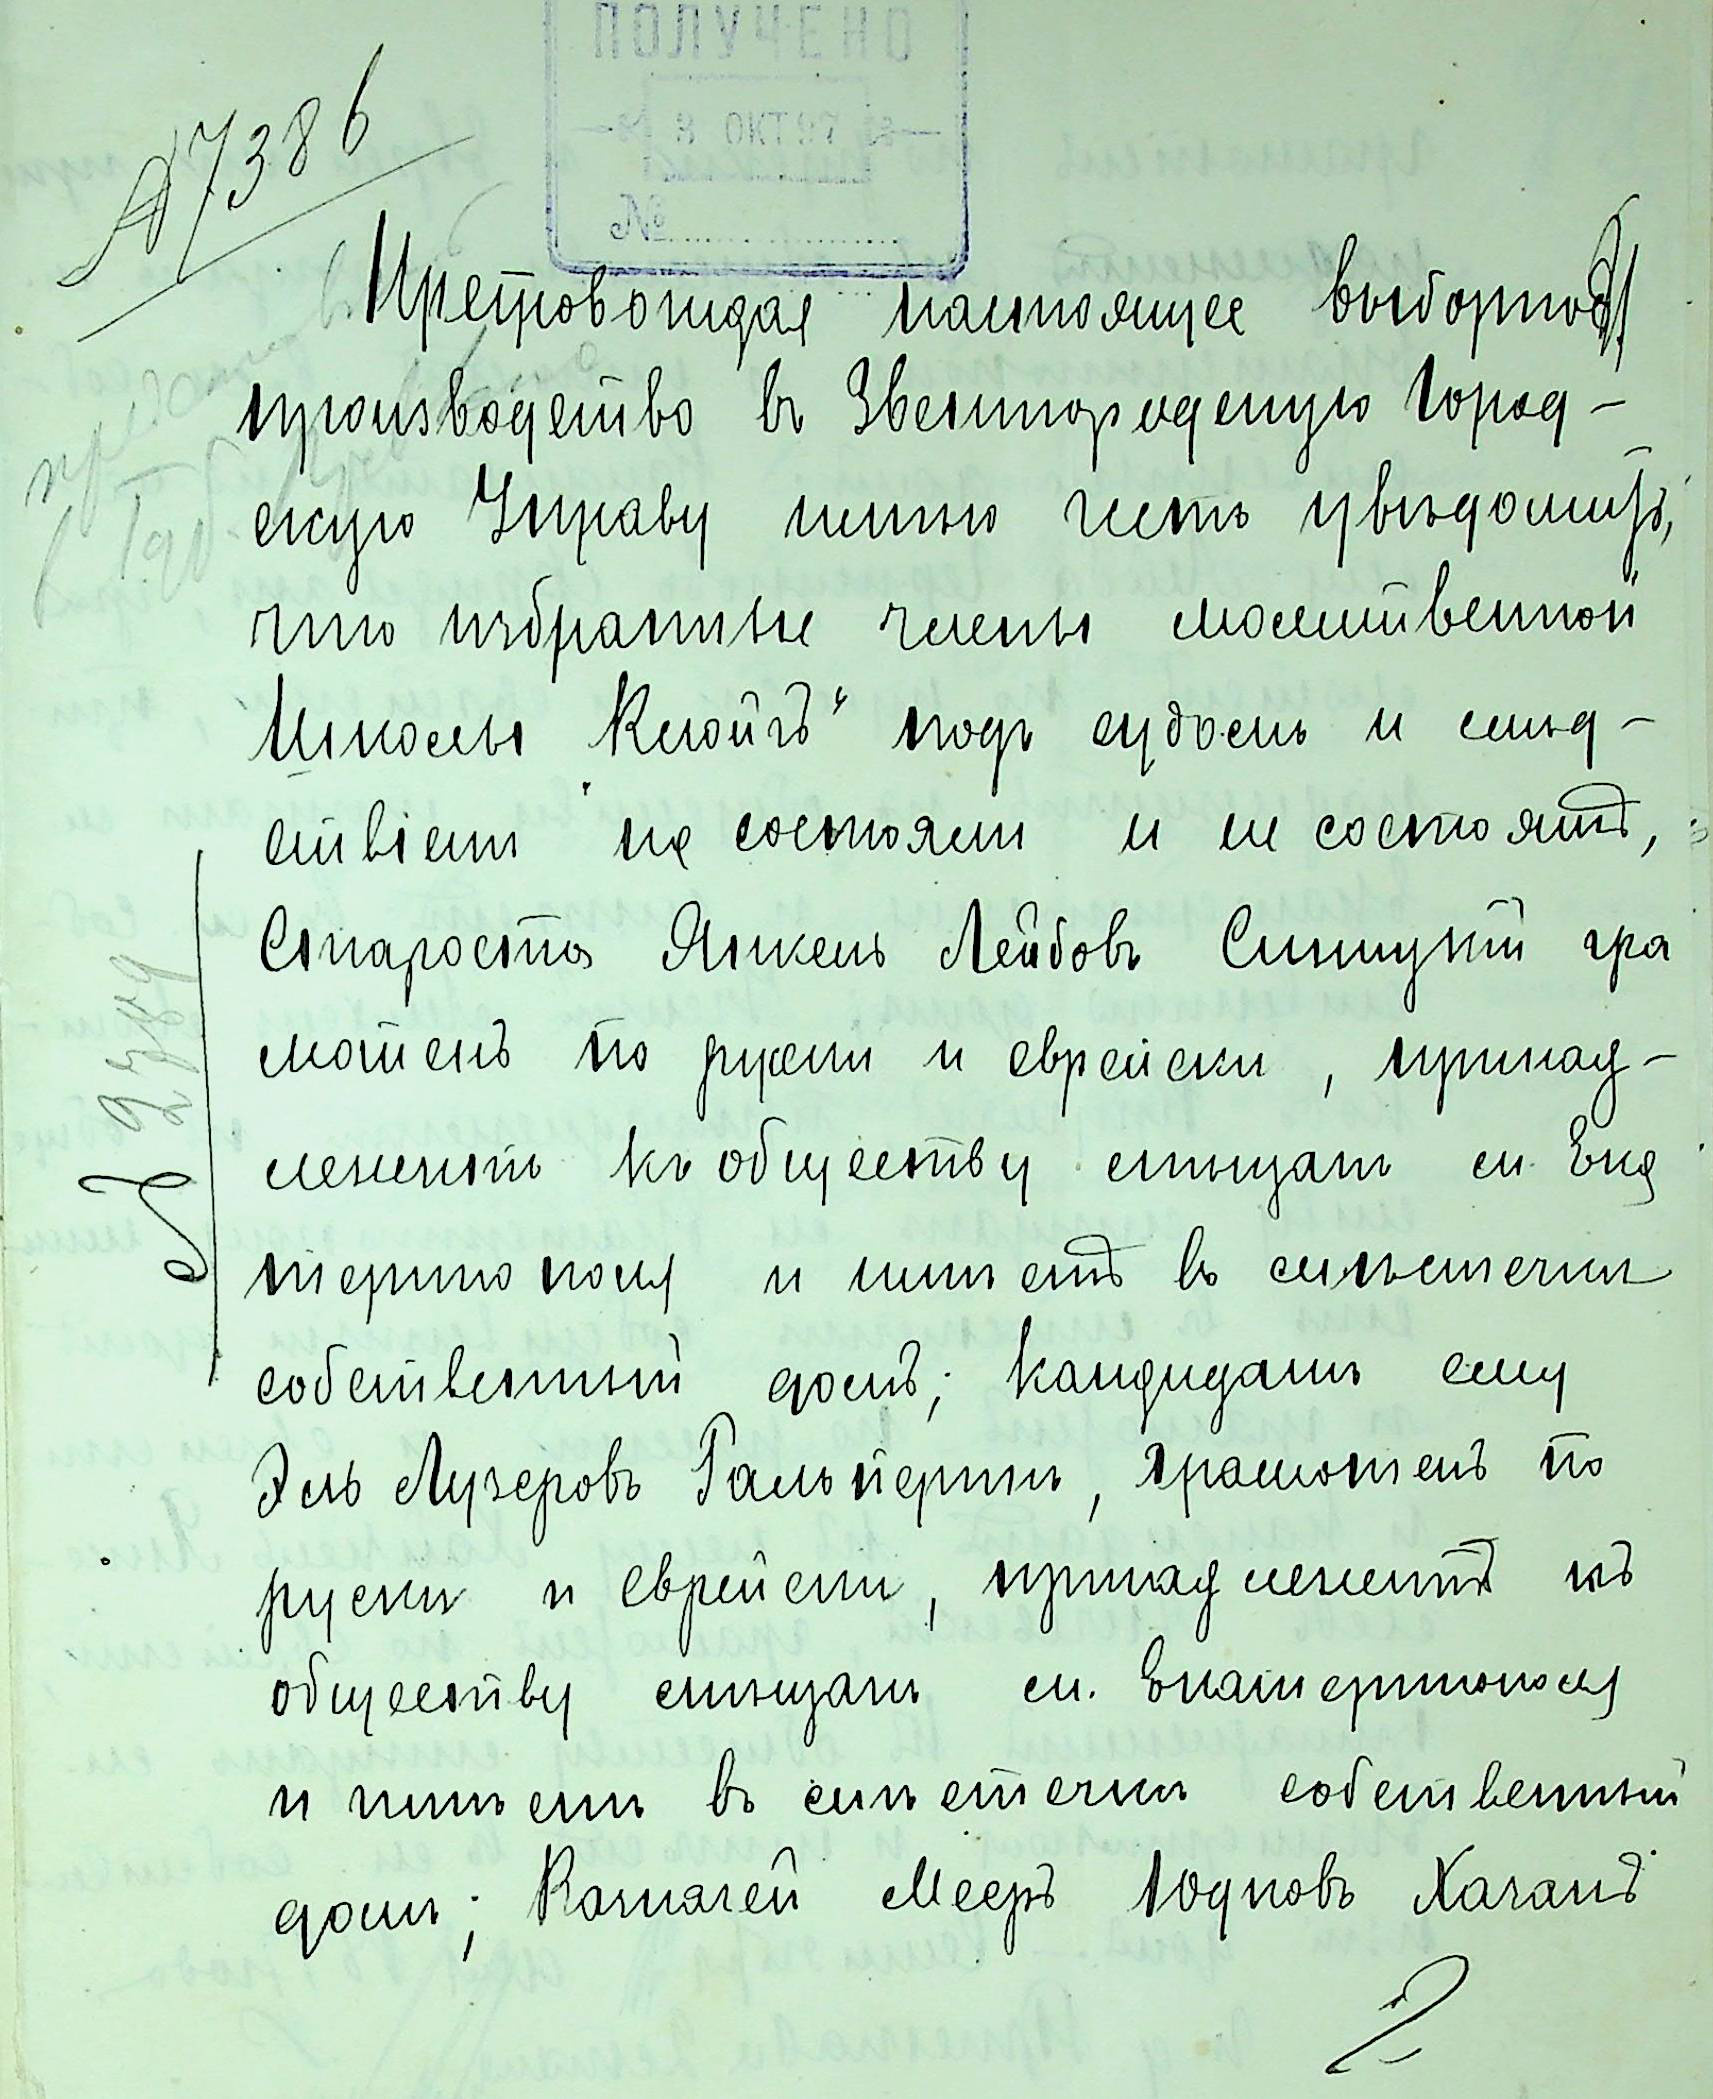 ПОЛУЧЕНО
8 ОКТ 97
№
№ 7386
Препровождая настоящее выборное
производство въ Звенигородскую Город-
скую Управу имѣю честь увѣдомить,
что избранные члены молитвенной
Школы „Клойзъ“ подъ судомъ и слѣд-
ствіемъ не состояли и не состоятъ,
Староста Янкель Лейбовъ Синицкій гра
мотенъ по руски и еврейски, принад-
лежитъ къ обществу мѣщанъ м. Ека
теринополя и имѣетъ въ мѣстечкѣ
собственный домъ; Кандидатъ ему
Эль Лузеровъ Гальперинъ, грамотенъ по
руски и еврейски, принадлежитъ къ
обществу мѣщанъ м. Екатеринополя
и имѣетъ въ мѣстечкѣ собственный
домъ; Казначей Мееръ Юдковъ Хаганъ